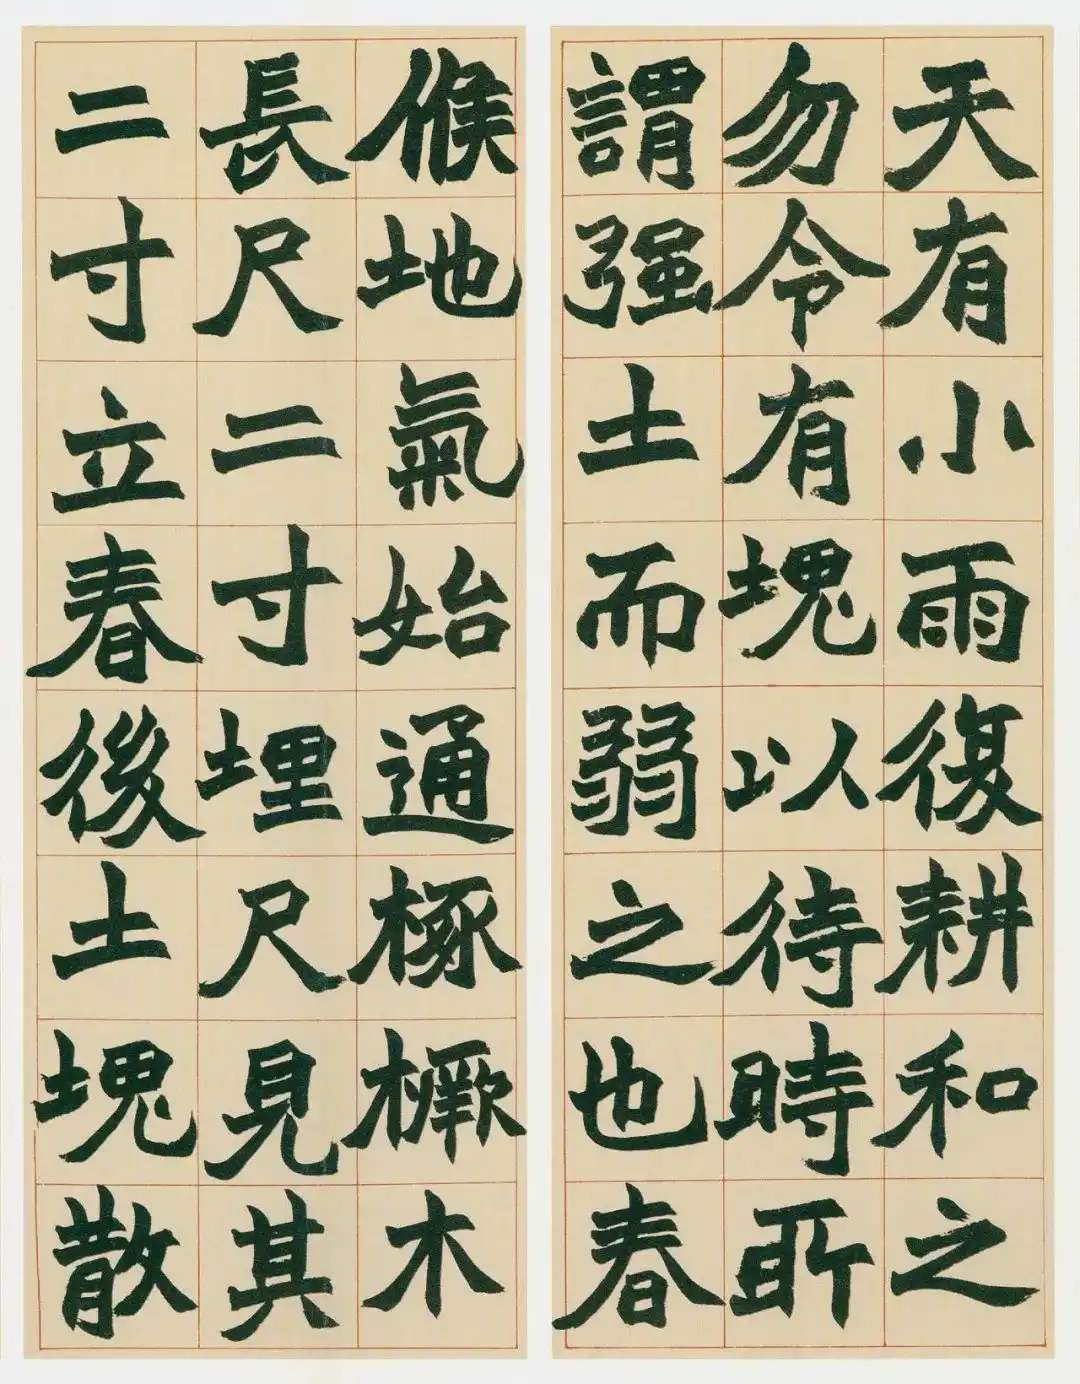 天有小雨復耕和之
勿令有塊以待時所
謂强土而弱之也春
候地氣始通椓橛木
長尺二寸埋尺見其
二寸立春後土塊散